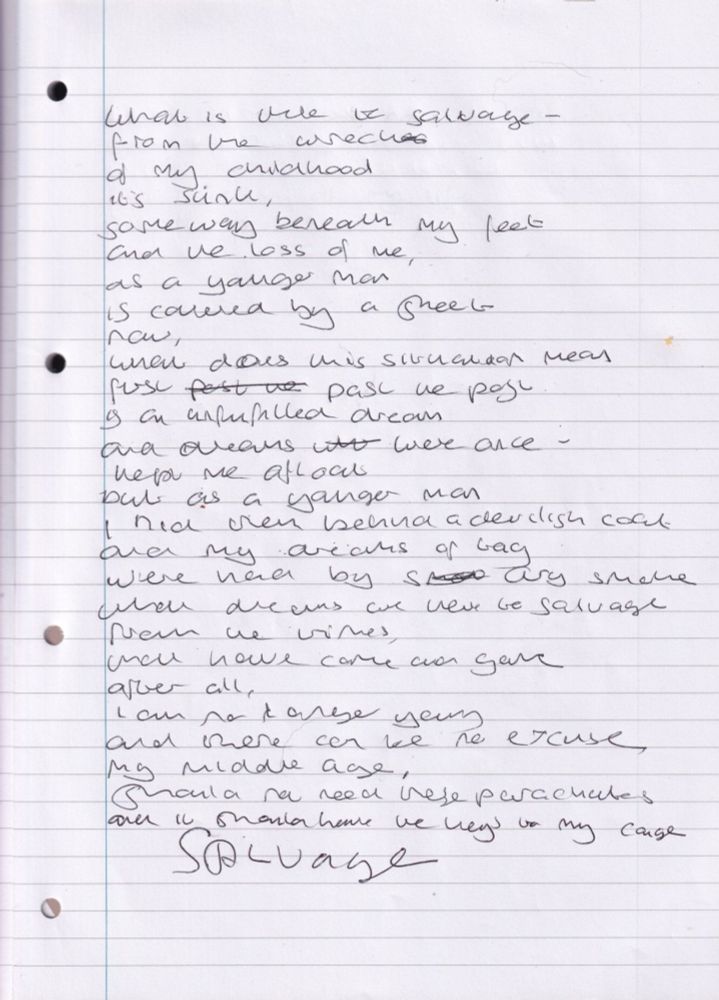 what is there to salvage -
from the wreck
of my childhood
it's sunk,
someway beneath my feet
and the loss of me,
as a younger man
is covered by a sheet
now,
what does this situation mean
just past the past past the post
is an unfulfilled dream
and dreams were once -
kept me afloat
but as a younger man
I hid them behind a devilish coat
and my dreams of
were held by smoke
what dreams are there to salvage
from the times,
that have come and gone
after all,
I am no longer young
and there can be no excuse,
my middle age,
should not need these parachutes
and it should have the keys to my cage
SALVAGE